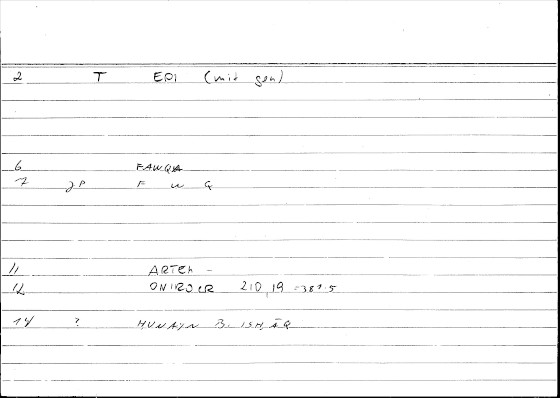 2 T EPI (mit gen)
6 FAWQA
7 JP F W Q
11 ARTEM -
12 ONIROCR 210,19 = 381.5
14 ? HUNAYN B. ISHĀQ